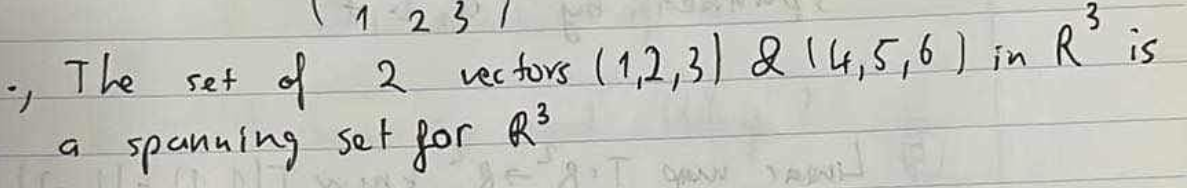 ( 1 2 3 )
., The set of 2 vectors (1,2,3) & (4,5,6) in R³ is
a spanning set for R³